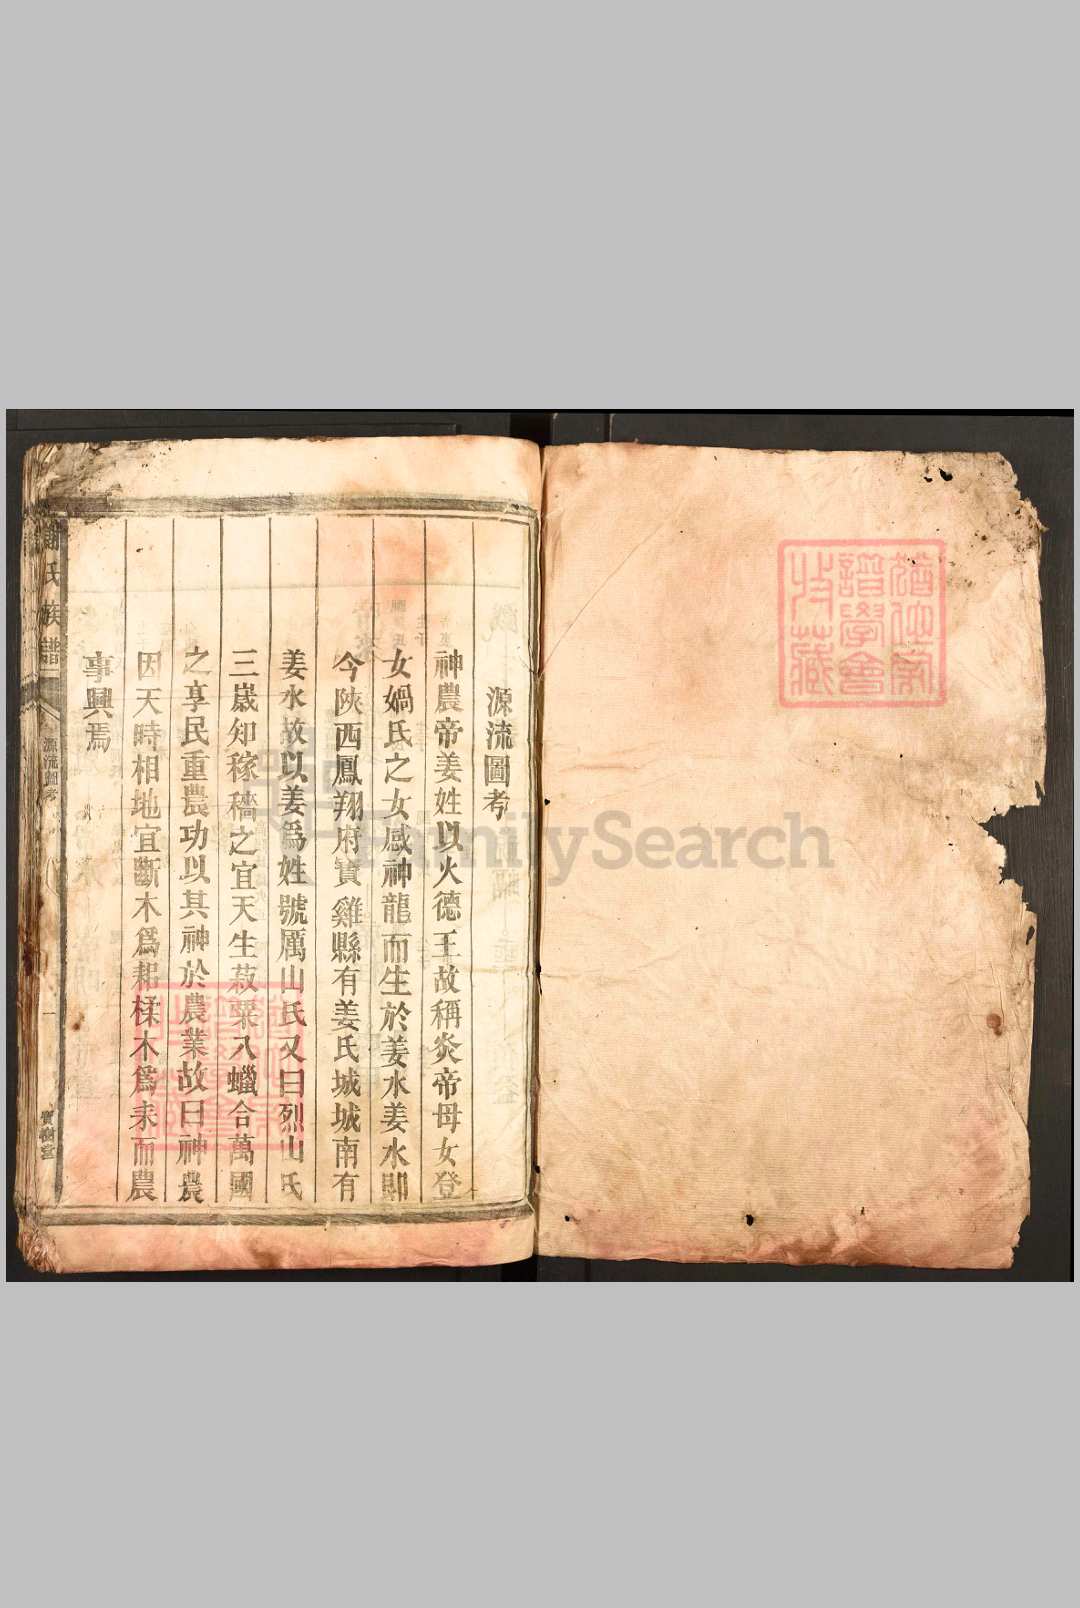 源流圖考
神農帝姜姓以火德王故稱炎帝母女登
女媧氏之女感神龍而生於姜水姜水即
今陝西鳳翔府寶雞縣有姜氏城城南有
姜水故以姜爲姓號厲山氏又曰烈山氏
三歲知稼穡之宜天生菽粟八蠟合萬國
之享民重農功以其神於農業故曰神農
因天時相地宜斷木爲耜楺木爲耒而農
事興焉
氏族譜
源流圖考
一
寶樹堂
FamilySearch